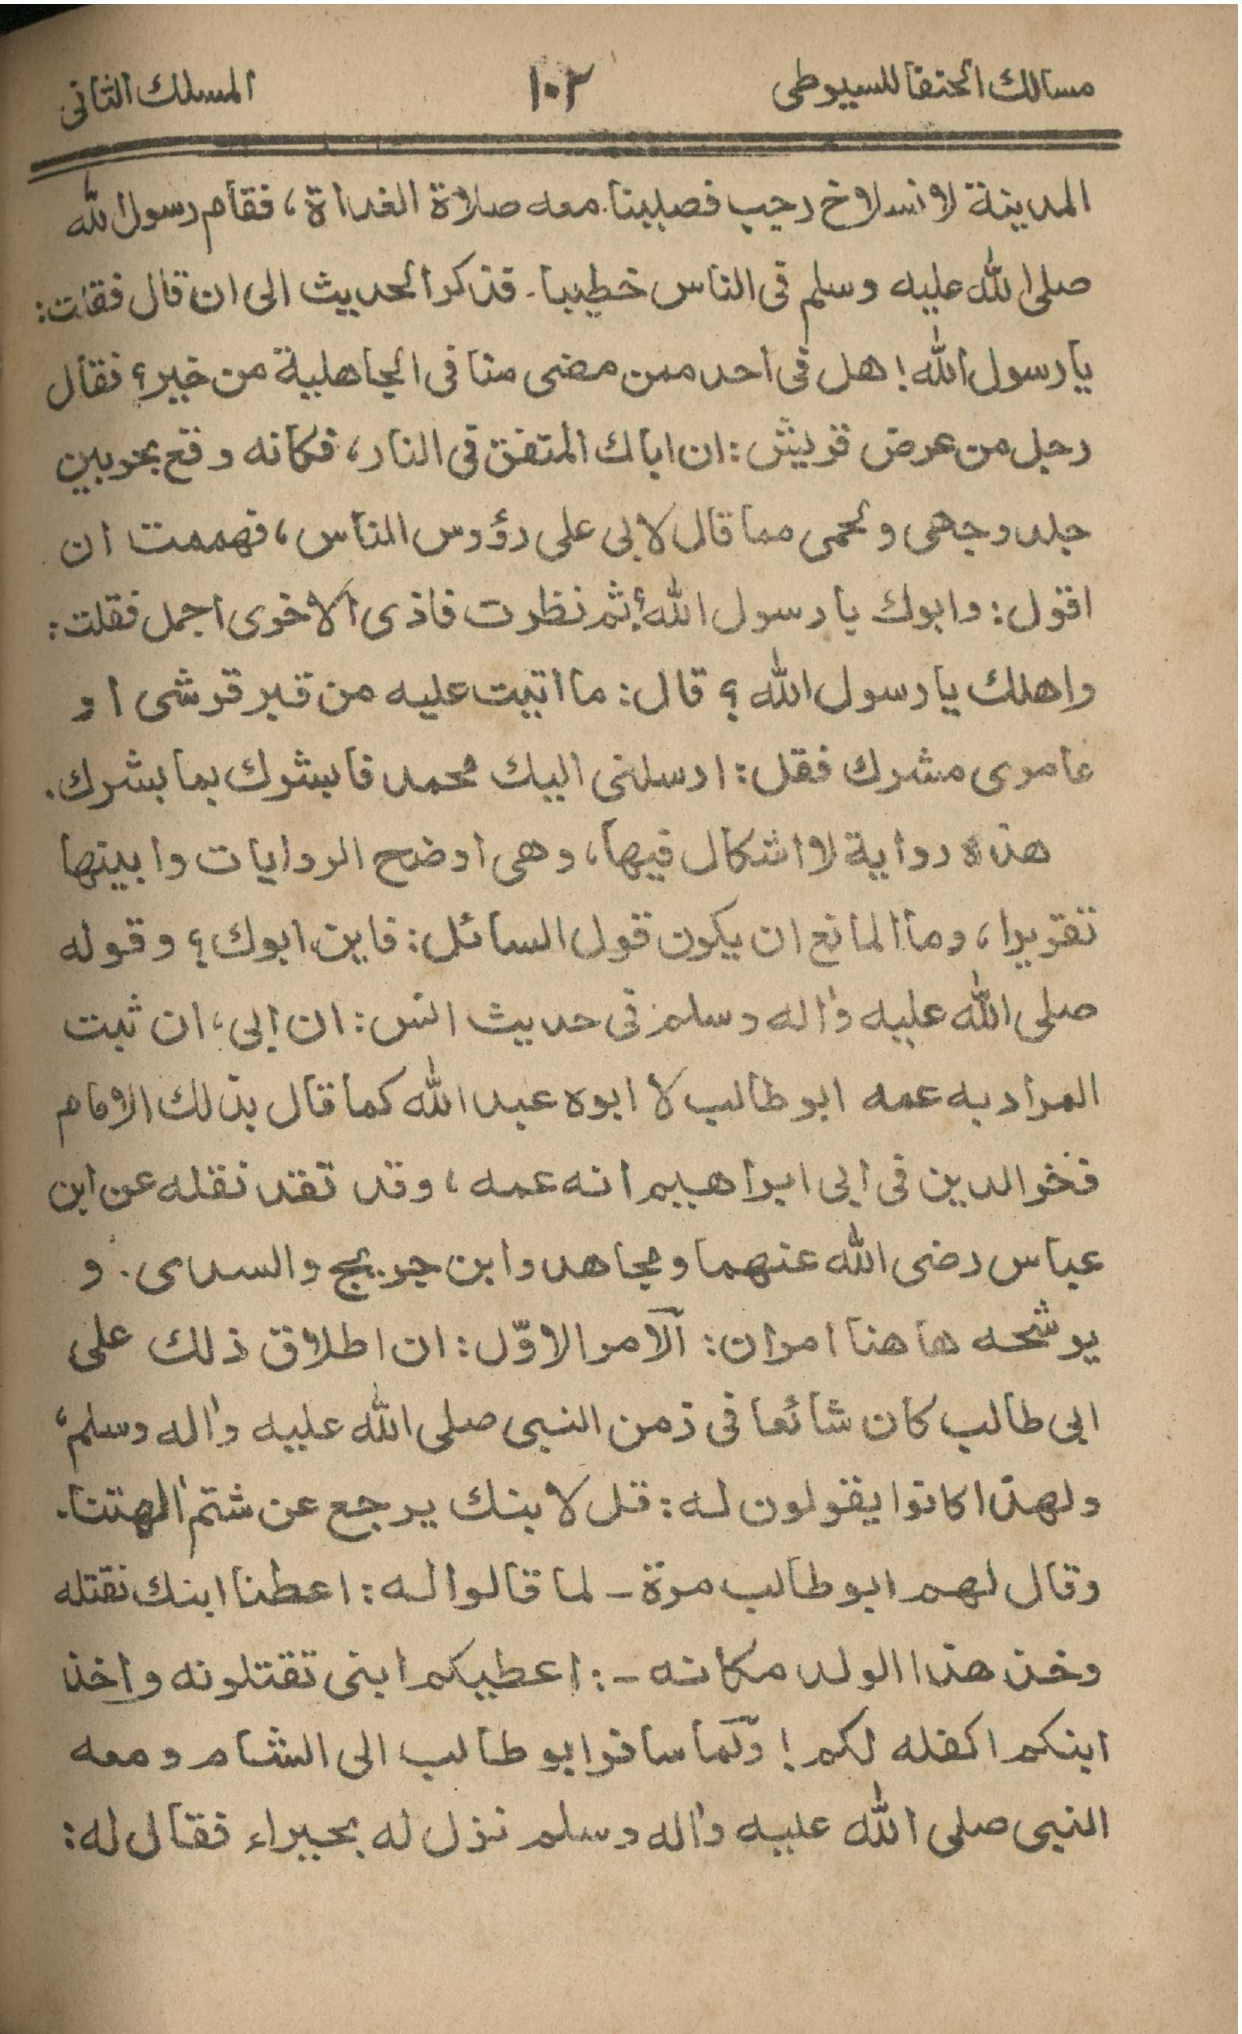 مسالك الحنفا للسيوطى ١٠٢ المسلك الثانى
المدينة لانسلاخ رجب فصلينا معه صلاة الغداة، فقام رسول الله
صلى الله عليه وسلم فى الناس خطيبا۔ فذكر الحديث الى ان قال فقلت:
يارسول الله! هل فى احد ممن مضى منا فى الجاهلية من خير؟ فقال
رجل من عرض قريش: ان اباك المتفق فى النار، فكانه وقع بحر بين
جلد وجهى ولحمى مما قال لابى على رؤوس الناس، فهممت ان
اقول: وابوك يا رسول الله؟ ثم نظرت فاذى الاخرى اجمل فقلت:
واهلك يارسول الله؟ قال: ما اتيت عليه من قبر قرشى او
عامرى مشرك فقل: ارسلنى اليك محمد فابشرك بما بشرك.
هذه رواية لا اشكال فيها، وهى اوضح الروايات وابينها
تقريرا، وما المانع ان يكون قول السائل: فاين ابوك؟ وقوله
صلى الله عليه واٰله وسلم فى حديث انس: ان ابى، ان ثبت
المراد به عمه ابو طالب لا ابوه عبد الله كما قال بذلك الامام
فخر الدين فى ابى ابراهيم انه عمه، وقد تقد نقله عن ابن
عباس رضى الله عنهما ومجاهد وابن جريج والسدى. و
يوشحه ها هنا امران: الامر الاوّل: ان اطلاق ذلك على
ابى طالب كان شائعا فى زمن النبى صلى الله عليه واٰله وسلم،
ولهذا كانوا يقولون له: قل لابنك يرجع عن شتم اٰلهتنا.
وقال لهم ابو طالب مرة - لما قالوا له: اعطنا ابنك نقتله
وخذ هذا الولد مكانه -: اعطيكم ابنى تقتلونه واخذ
ابنكم اكفله لكم! ولما سافر ابو طالب الى الشام ومعه
النبى صلى الله عليه واٰله وسلم نزل له بحيراء فقال له: